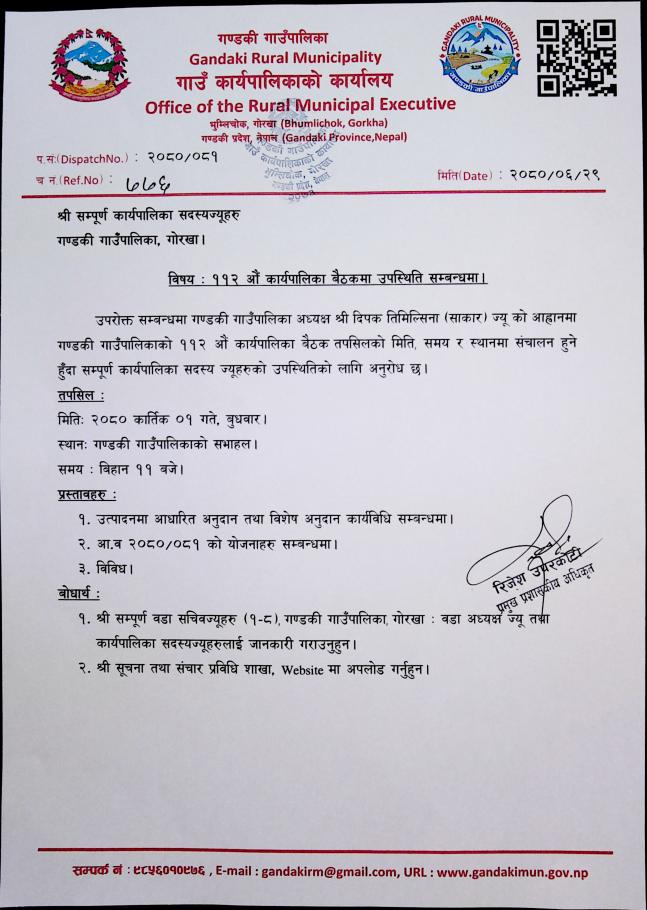 गण्डकी गाउँपालिका
Gandaki Rural Municipality
गाउँ कार्यपालिकाको कार्यालय
Office of the Rural Municipal Executive
भुम्लिचोक, गोरखा (Bhumlichok, Gorkha)
गण्डकी प्रदेश, नेपाल (Gandaki Province,Nepal)
GANDAKI RURAL MUNICIPALITY
गण्डकी गाउँपालिका
प.सं:(DispatchNo.) : २०८०/०८१
च नं.(Ref.No) : ७७६
मिति(Date) : २०८०/०६/२९
श्री सम्पूर्ण कार्यपालिका सदस्यज्यूहरु
गण्डकी गाउँपालिका, गोरखा।
विषय : ११२ औं कार्यपालिका बैठकमा उपस्थिति सम्बन्धमा।
उपरोक्त सम्बन्धमा गण्डकी गाउँपालिका अध्यक्ष श्री दिपक तिमिल्सिना (साकार) ज्यू को आह्वानमा
गण्डकी गाउँपालिकाको ११२ औं कार्यपालिका बैठक तपसिलको मिति, समय र स्थानमा संचालन हुने
हुँदा सम्पूर्ण कार्यपालिका सदस्य ज्यूहरुको उपस्थितिको लागि अनुरोध छ।
तपसिल :
मितिः २०८० कार्तिक ०१ गते, बुधवार।
स्थानः गण्डकी गाउँपालिकाको सभाहल।
समय : बिहान ११ बजे।
प्रस्तावहरु :
१. उत्पादनमा आधारित अनुदान तथा विशेष अनुदान कार्यविधि सम्बन्धमा।
२. आ.व २०८०/०८१ को योजनाहरु सम्बन्धमा।
३. विविध।
रिजेश उपरकोटी
प्रमुख प्रशासकीय अधिकृत
बोधार्थ :
१. श्री सम्पूर्ण वडा सचिवज्यूहरु (१-८), गण्डकी गाउँपालिका, गोरखा : वडा अध्यक्ष ज्यू तथा
कार्यपालिका सदस्यज्यूहरुलाई जानकारी गराउनुहुन।
२. श्री सूचना तथा संचार प्रविधि शाखा, Website मा अपलोड गर्नुहुन।
सम्पर्क नं : ९८५६०१०९७६ , E-mail : gandakirm@gmail.com, URL : www.gandakimun.gov.np